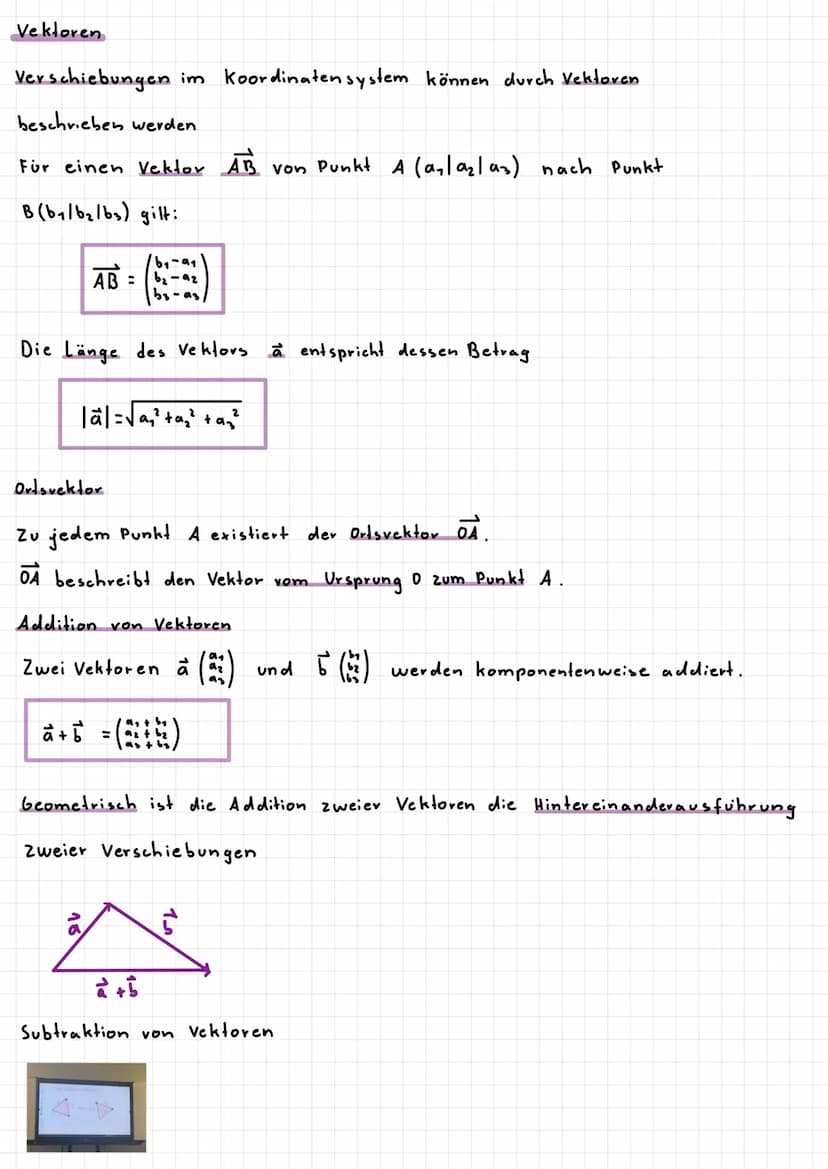 Vektoren
Verschiebungen im Koordinatensystem können durch Vektoren
beschrieben werden
Für einen Vektor \overrightarrow{AB} von Punkt A (a₁|a₂|a₃) nach Punkt
B(b₁|b₂|b₃) gilt:
\overrightarrow{AB} = \begin{pmatrix} b₁-a₁ \\ b₂-a₂ \\ b₃-a₃ \end{pmatrix}
Die Länge des Vektors \vec{a} entspricht dessen Betrag
|\vec{a}| = \sqrt{a₁² + a₂² + a₃²}
Ortsvektor
Zu jedem Punkt A existiert der Ortsvektor \overrightarrow{OA}.
\overrightarrow{OA} beschreibt den Vektor vom Ursprung O zum Punkt A.
Addition von Vektoren
Zwei Vektoren \vec{a} \begin{pmatrix} a₁ \\ a₂ \\ a₃ \end{pmatrix} und \vec{b} \begin{pmatrix} b₁ \\ b₂ \\ b₃ \end{pmatrix} werden komponentenweise addiert.
\vec{a} + \vec{b} = \begin{pmatrix} a₁ + b₁ \\ a₂ + b₂ \\ a₃ + b₃ \end{pmatrix}
Geometrisch ist die Addition zweier Vektoren die Hintereinanderausführung
zweier Verschiebungen
\vec{a} \vec{b}
\vec{a} + \vec{b}
Subtraktion von Vektoren